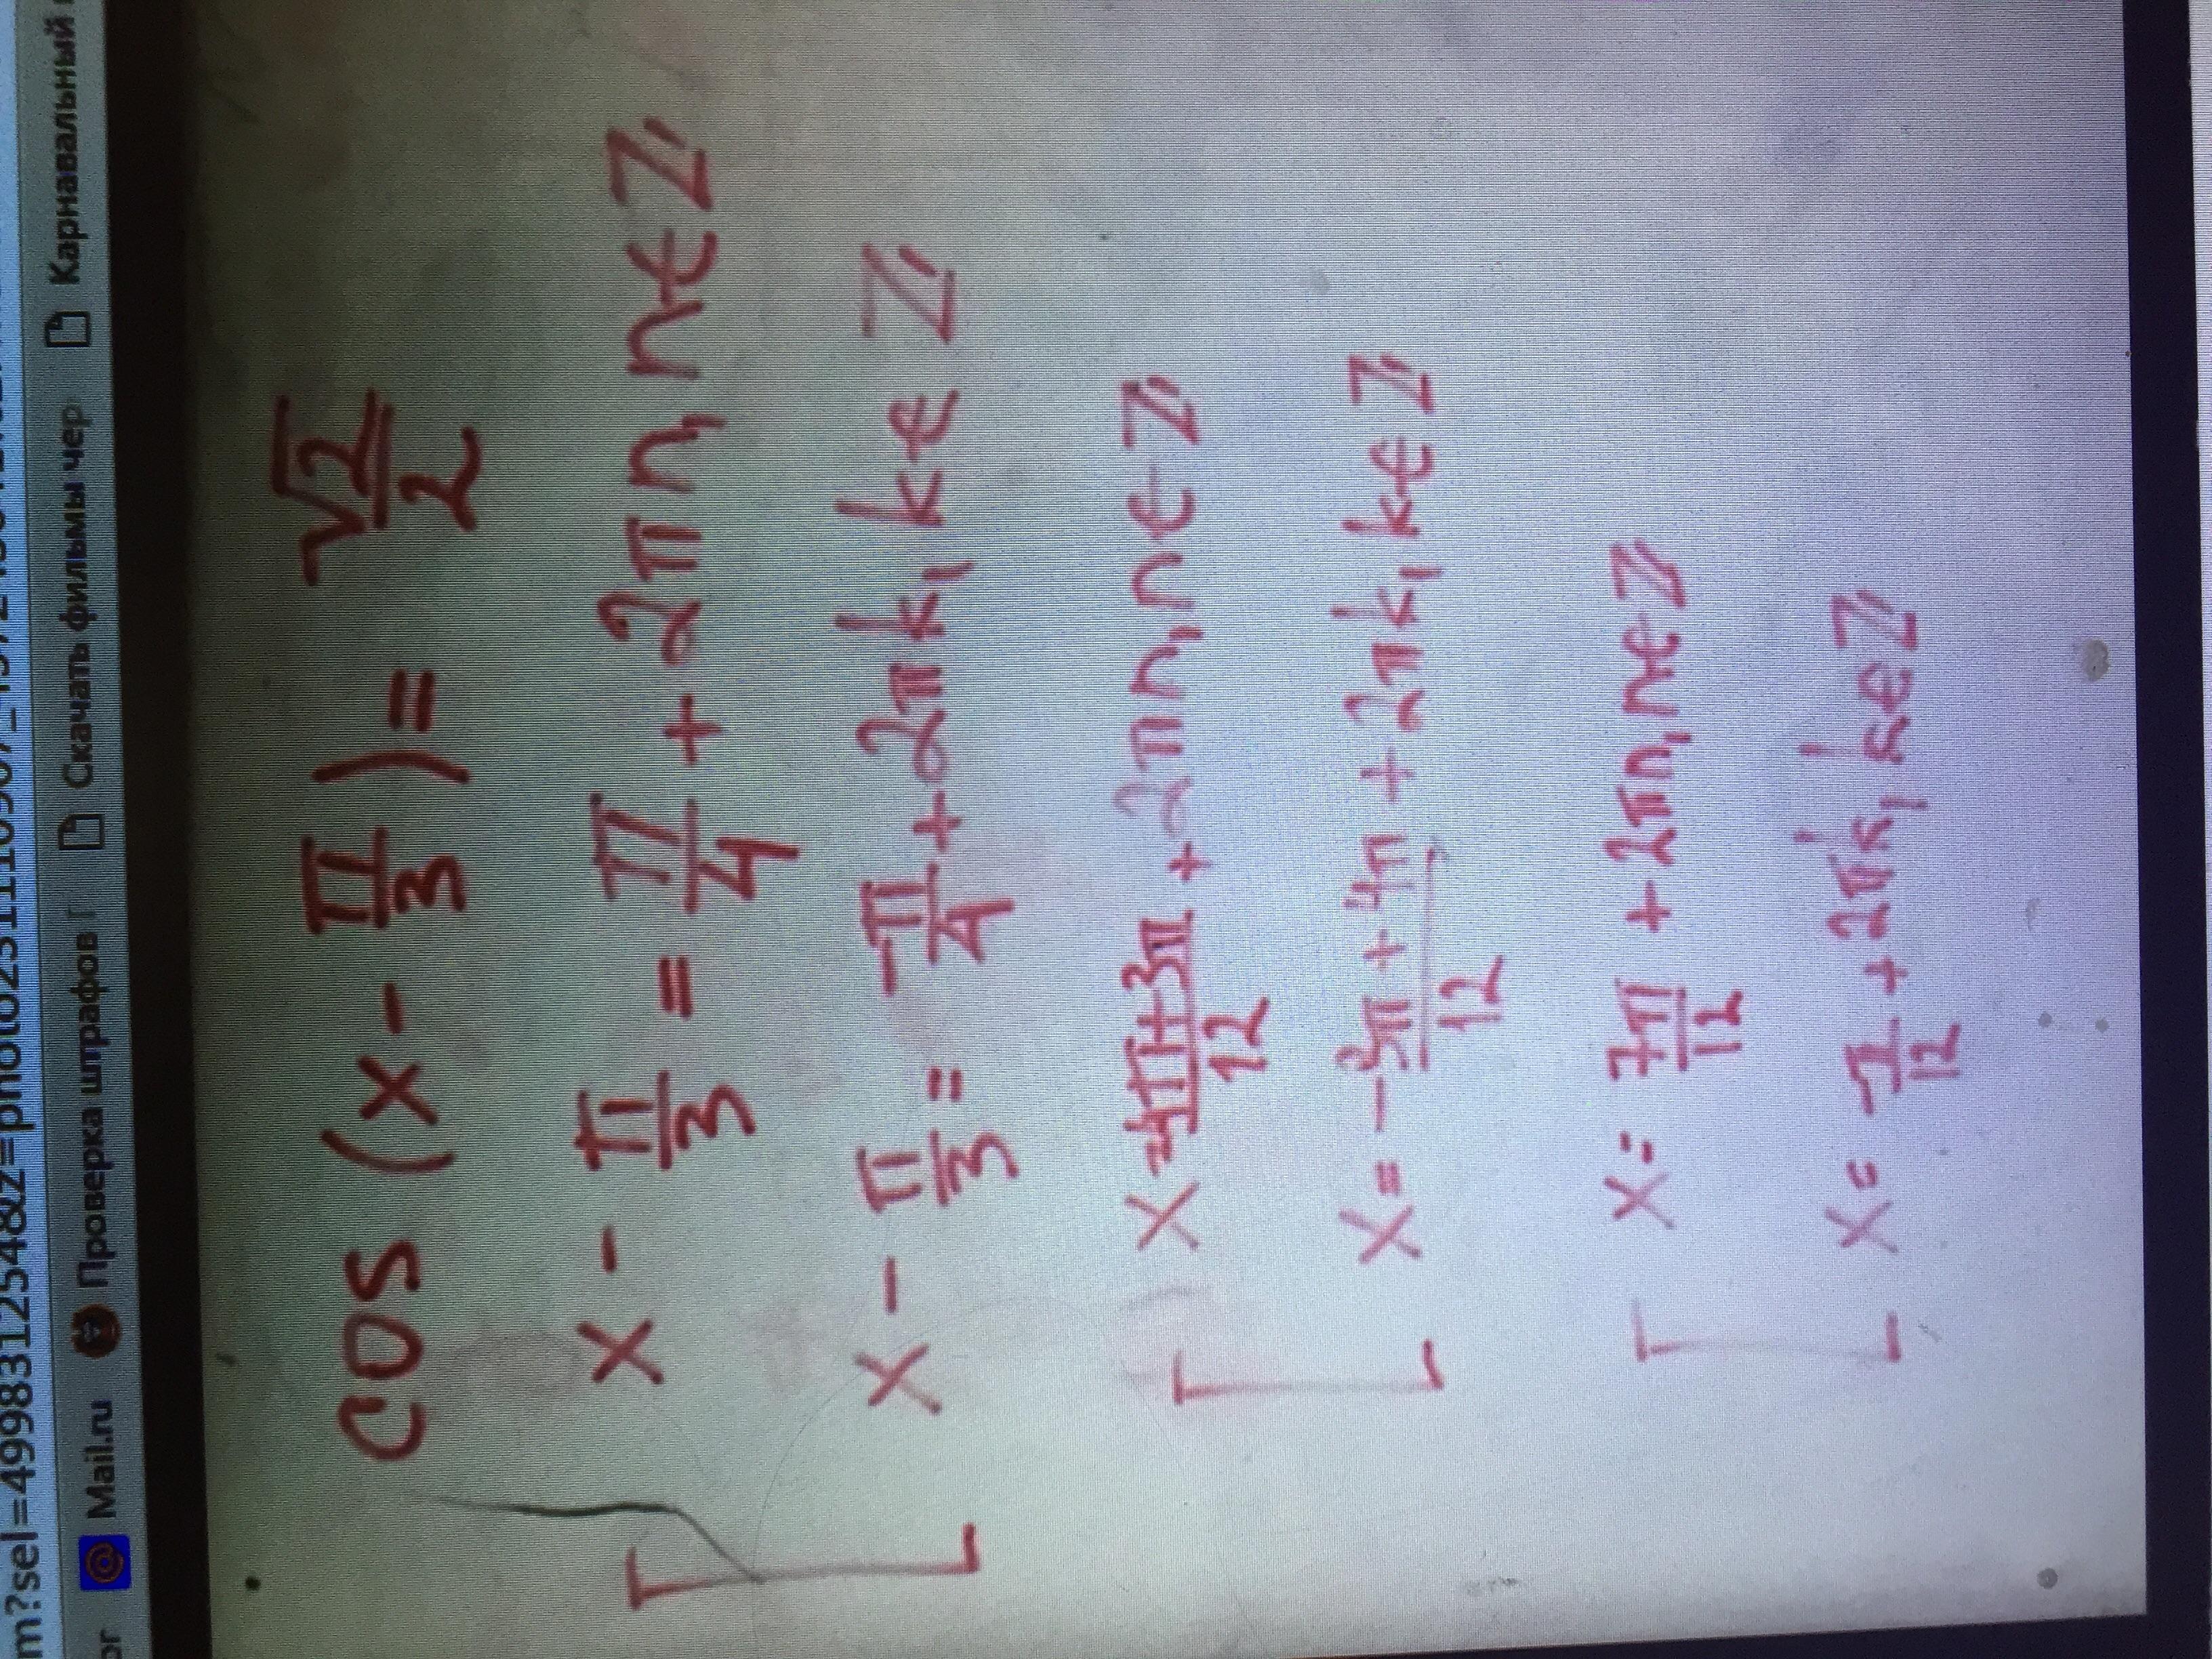 m?sel=499831254&z=photo231110907
ог Mail.ru Проверка штрафов Г Скачать фильмы чер Карнавальный
cos (x - π/3) = √2/2
x - π/3 = π/4 + 2πn, n∈Z
x - π/3 = -π/4 + 2πk, k∈Z
x = 4π+3π/12 + 2πn, n∈Z
x = -3π+4π/12 + 2πk, k∈Z
x = 7π/12 + 2πn, n∈Z
x = π/12 + 2πk, k∈Z